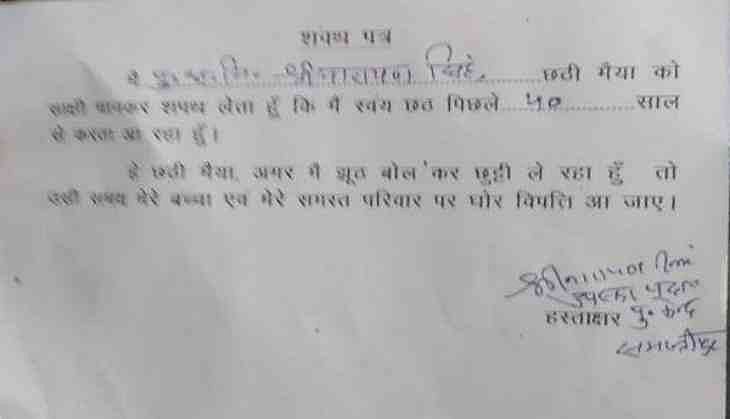 शपथ पत्र
मै पु०अ०नि० श्रीनारायण सिंह छठी मैया को
साक्षी मानकर शपथ लेता हूँ कि मैं स्वयं छठ पिछले ५० साल
से करता आ रहा हूँ।
हे छठी मैया, अगर मै झूठ बोल कर छुट्टी ले रहा हूँ तो
उसी समय मेरे बच्चा एवं मेरे समस्त परिवार पर घोर विपत्ति आ जाए।
श्रीनारायण सिंह
हस्ताक्षर पु० केन्द्र